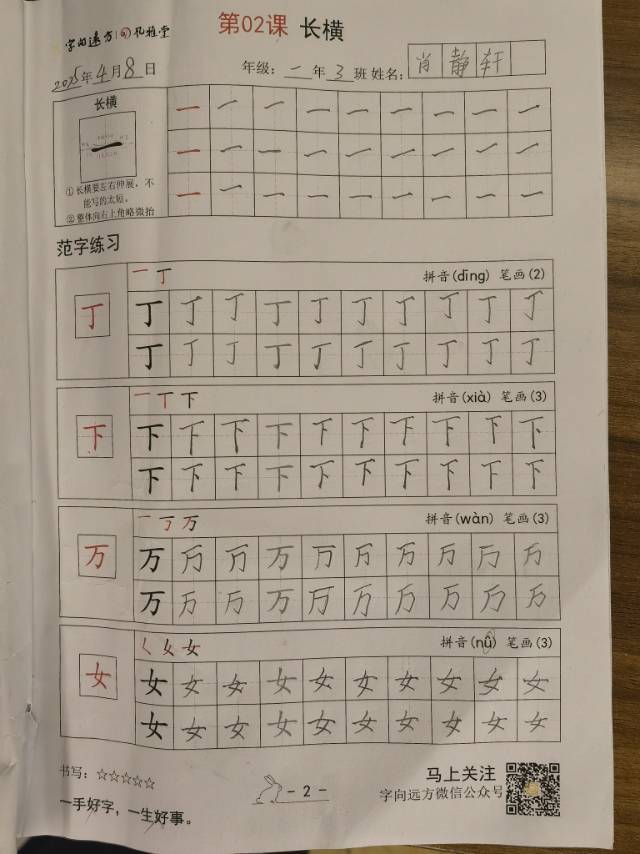 字向远方 孔雅堂
第02课 长横
2025年4月8日 年级：一年3班 姓名：肖静轩
长横
①长横要左右伸展，不
能写的太短。
②整体向右上角略微抬
范字练习
一丁 拼音(dīng) 笔画(2)
丁 丁 丁 丁 丁 丁 丁 丁 丁 丁 丁
丁 丁 丁 丁 丁 丁 丁 丁 丁 丁
一丅下 拼音(xià) 笔画(3)
下 下 下 下 下 下 下 下 下 下 下
下 下 下 下 下 下 下 下 下 下
一丁万 拼音(wàn) 笔画(3)
万 万 万 万 万 万 万 万 万 万 万
万 万 万 万 万 万 万 万 万 万
女 拼音(nǚ) 笔画(3)
女 女 女 女 女 女 女 女 女 女 女
女 女 女 女 女 女 女 女 女 女
书写：☆☆☆☆☆
一手好字，一生好事。
-2-
马上关注
字向远方微信公众号